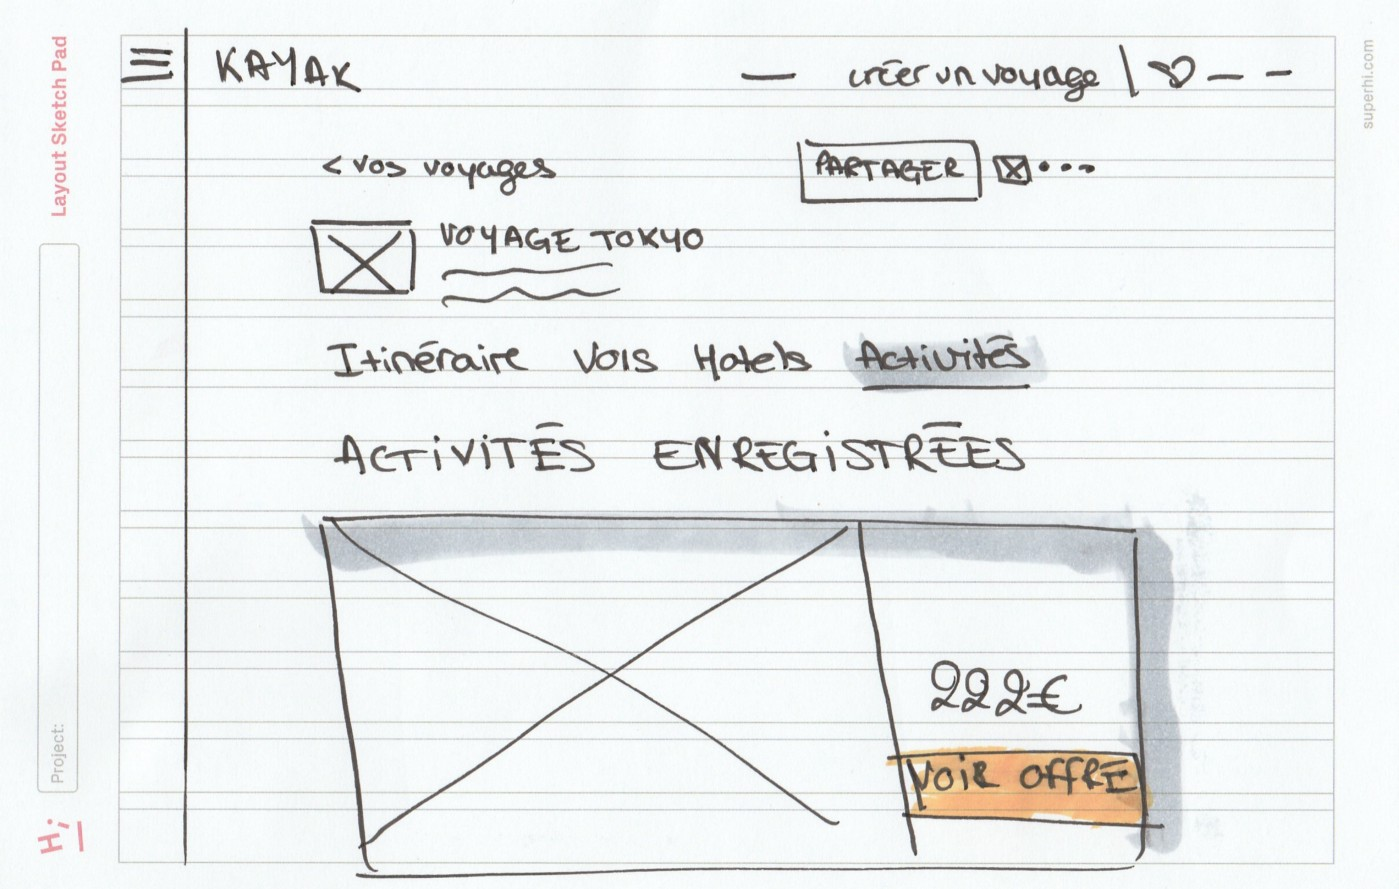 Layout Sketch Pad
superhi.com
Project:
Hi
KAYAK
créer un voyage
< vos voyages
PARTAGER
VOYAGE TOKYO
Itinéraire Vols Hotels Activités
ACTiViTÉS ENREGiSTRÉES
222€
VOiR OFFRE